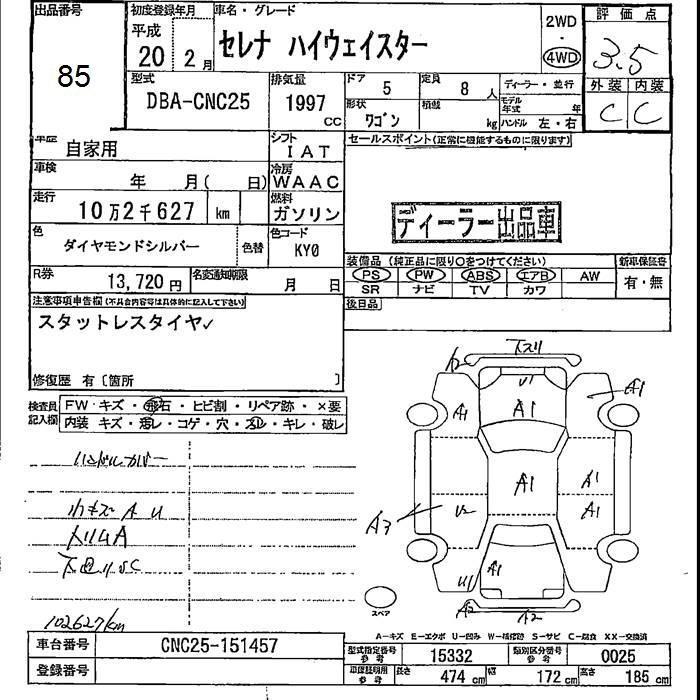 出品番号
85
初度登録年月
平成
20 2月
車名・グレード
セレナ ハイウェイスター
2WD
・
4WD
評価点
3.5
外装 内装
C C
型式
DBA-CNC25
排気量
1997
CC
ドア 5
定員 8人
形状 ワゴン
積載 kg
ディーラー・並行
モデル年式 年
ハンドル 左・右
車歴 自家用
シフト
IAT
車検 年 月( 日)
冷房
WAAC
走行
10万2千627 km
燃料
ガソリン
色
ダイヤモンドシルバー
色替
色コード
KY0
R券
13,720円
名変通知期限
月 日
セールスポイント(正常に機能するものに限ります)
ディーラー出品車
装備品(純正品に限り○をつけてください)
PS PW ABS エアB AW
SR ナビ TV カワ
新車保証書
有・無
後日品
注意事項申告欄(不具合内容等は具体的に記入して下さい)
スタットレスタイヤ✓
修復歴 有〔箇所
検査員
記入欄
FW・キズ・飛石・ヒビ割・リペア跡・×要
内装 キズ・汚レ・コゲ・穴・スレ・キレ・破レ
ハンドルカバー
小キズ A U
下廻りSC
102627km
下スリ
A2
U1
A1
A1
A1
A1
A1
A1
A3
U2
A1
U1
A2
A2
スペア
A－キズ E－エクボ U－凹み W－補修跡 S－サビ C－腐食 XX－交換済
車台番号
CNC25-151457
登録番号
型式指定番号
参考
15332
類別区分番号
参考
0025
車庫証明用
参考
長さ 474 cm
幅 172 cm
高さ 185 cm